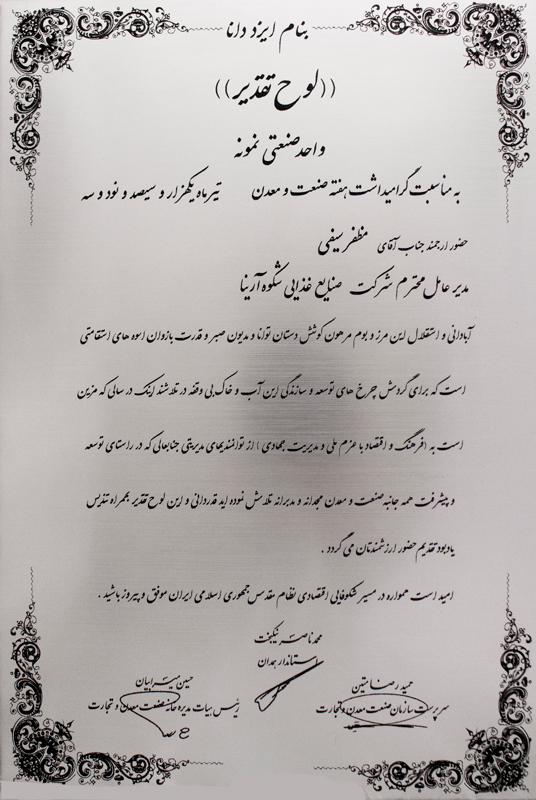 بنام ایزد دانا
((لوح تقدیر))
واحد صنعتی نمونه
به مناسبت گرامیداشت هفته صنعت و معدن تیرماه یکهزار و سیصد و نود و سه
حضور ارجمند جناب آقای مظفر سیفی
مدیر عامل محترم شرکت صنایع غذایی شکوه آرینا
آبادانی و استقلال این مرز و بوم مرهون کوشش دستان توانا و مدیون صبر و قدرت بازوان اسوه های استقامتی
است که برای گردش چرخ های توسعه و سازندگی این آب و خاک بی وقفه در تلاشند اینک در سالی که مزین
است به (فرهنگ و اقتصاد با عزم ملی و مدیریت جهادی) از توانمندیهای مدیریتی جنابعالی که در راستای توسعه
و پیشرفت همه جانبه صنعت و معدن مجدانه و مدبرانه تلاش نموده اید قدردانی و این لوح تقدیر بهمراه تندیس
یادبود تقدیم حضور ارزشمندتان می گردد .
امید است همواره در مسیر شکوفایی اقتصادی نظام مقدس جمهوری اسلامی ایران موفق و پیروز باشید .
محمد ناصر نیکبخت
استاندار همدان
حمید رضا متین
سرپرست سازمان صنعت معدن و تجارت
حسین میرابیان
رئیس هیات مدیره خانه صنعت معدن و تجارت